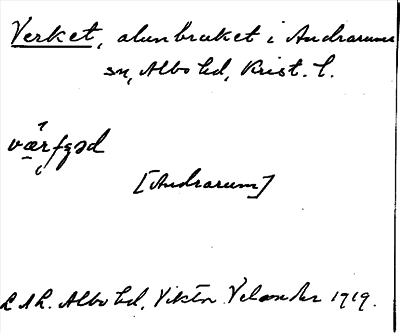 Verket, alunbruket i Andrarums
sn, Albo hd, Krist. l.
[Andrarum]
L A L. Albo hd, Viktor Velander 1919.